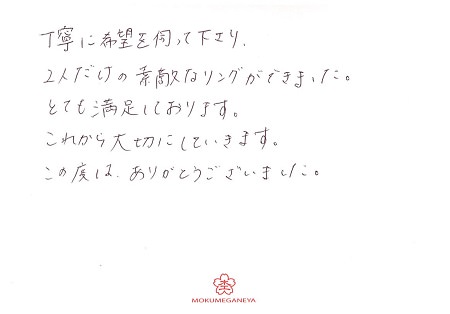 丁寧に希望を伺って下さり、
2人だけの素敵なリングができました。
とても満足しております。
これから大切にしていきます。
この度は、ありがとうございました。
MOKUMEGANEYA